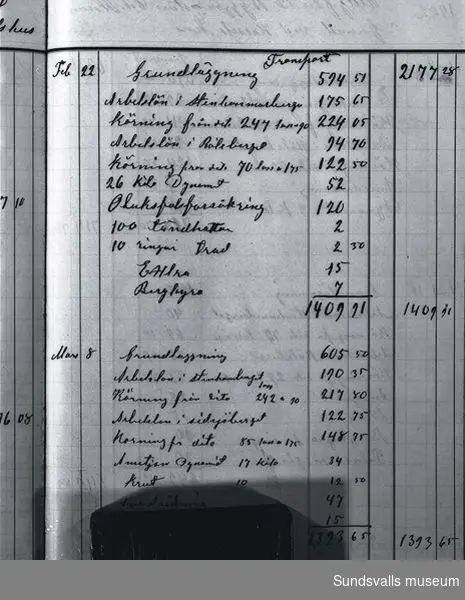 Transport
Feb 22 Grundläggning 594 51 2177 28
Arbetslön i 175 65
Körning från dito 247 lass a 90 224 05
Arbetslön i 94 70
Körning fran dito 70 lass a 175 122 50
26 Kilo Dynamit 52
Olycksfalsförsäkring 120
100 tändhattar 2
10 ringar Trad 2 30
Extra 15
Berghyra 7
1409 91 1409 91
Mars 8 Grundläggning 605 50
Arbetslon i 190 35
Körning från dito 242 lass a 90 217 80
Arbetslon i sidsjöberget 122 75
Körning fr dito 85 lass a 175 148 75
Dynamit 17 Kilo 34
Krut 10 12 50
47
15
1393 65 1393 65
7 10
6 08
Sundsvalls museum